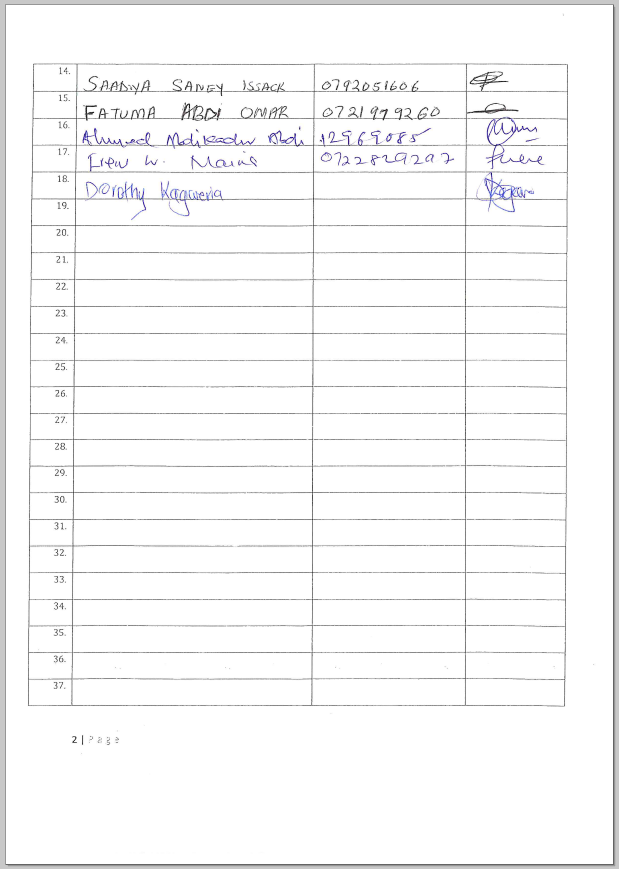 14. SAADIYA SANEY ISSACK 0792051606
15. FATUMA ABDI OMAR 0721979260
16. Ahmed Abdikadir Abdi 12969085
17. W. 0722829297
18. Dorothy Kagweria
19.
20.
21.
22.
23.
24.
25.
26.
27.
28.
29.
30.
31.
32.
33.
34.
35.
36.
37.
2 | Page